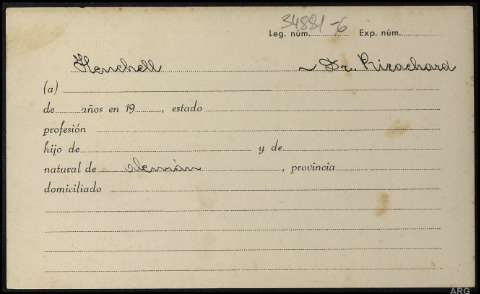 Leg. núm. 34881-6 Exp. núm.
Henchell ~ Dr. Ricachard
(a)
de años en 19 , estado
profesión
hijo de y de
natural de alemán , provincia
domiciliado
ARG